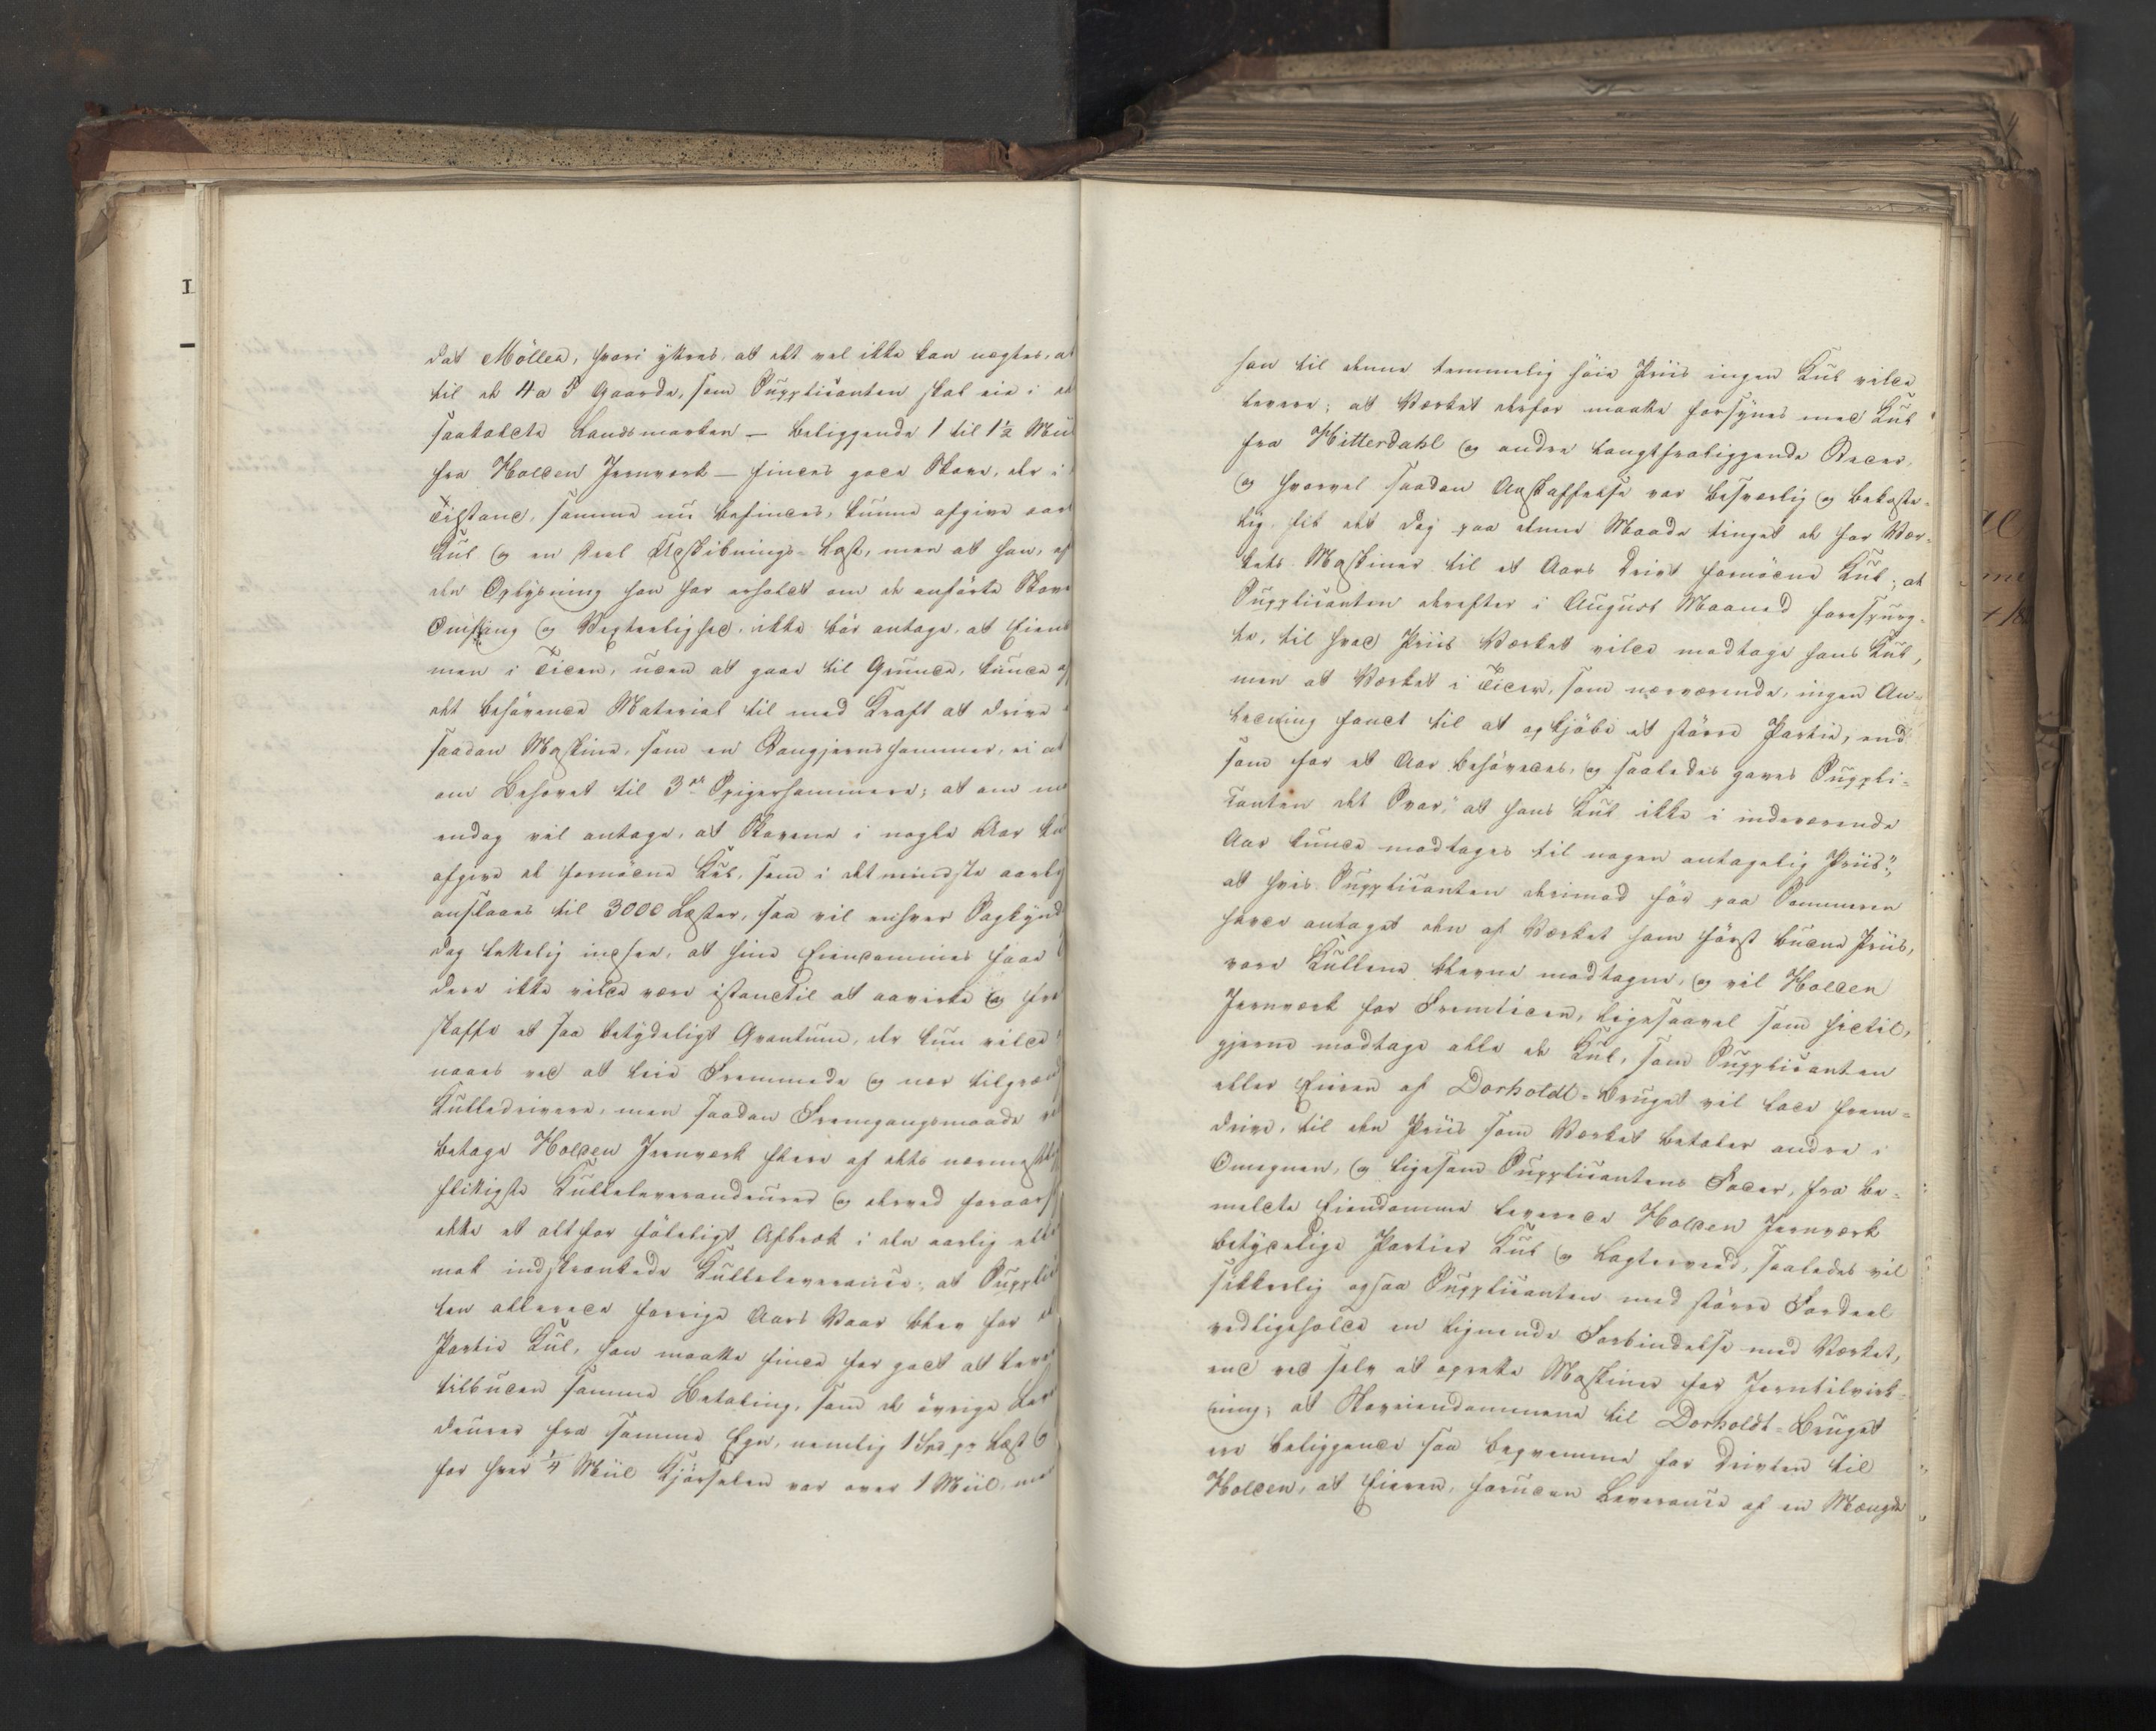 dat Möller, hvori yttres, at det vel ikke kan nægtes, at
til de 4 a 5 Gaarde, som Supplicanten skal eie i de
saakaldte Landsmarken – beliggende 1 til 1½ Miil
fra Holden Jernværk – findes gode Skove, der i
Tilstand, samme nu befindes, kunne afgive en
Kul og en Deel Udskibnings-Last, men at han, af
den Oplysning han har erholdt om de anförte Skoves
Omfang og Vegterlighed, ikke bör antage, at Eiendom
men i Tiden, uden at gaae til Grunde, kunde af
det behövende Material til med Kraft at drive
saadan Maskine, som en Stangjernshammer, ei at
om Behovet til 3de Spigerhammere; at om man
endog vil antage, at Skovene i nogle Aar ku
afgive de fornödne Kul, som i det mindste aarlig
anslaaes til 3000 Læster, saa vil enhver Sagkynd
dog lettelig indsee, at hine Eiendommes Huus
dere ikke vilde være istandtil at avirke og frem
skaffe et saa betydeligt Qvantum, der kun vilde
naaes ved at leie Fremmede og nær tilgrænd
Kulledrivere, men saadan Fremgangsmaade vil
betage Holden Jernværk flere af dets nærmeste
flittigste Kulleleverandeurer og derved foraars
dette et altfor föleligt Afbræk i den aarlig alle
mak indskrænkede Kulleleverance; at Supplic
ten allerede forrige Aars Vaar blev for et
Partie Kul, han maatte finde for godt at leve
tilbuden samme Betaling, som de övrige Lev
deurer fra samme Egn, nemlig 1 Spd pr Læst 6
for hver ¼ Miil Kjörselen var over 1 Miil, me
han til denne temmelig höie Priis ingen Kul vilde
levere; at Værket derfor maatte forsynes med Kul
fra Hitterdahl og andre langtfraliggende Steder,
og hvorvel saadan Anskaffelse var besværlig og bekoste-
lig, fik det dog paa denne Maade tinget de for Vær-
kets Maskiner til et Aars Drivt fornödne Kul; at
Supplicanten derefter i August Maaned forespurg-
te, til hvad Priis Værket vilde modtage hans Kul,
men at Værket i Tider, som nærværende, ingen An-
ledning fandt til at opkjöbe et större Partie, end
som for et Aar behövedes, og saaledes gaves Suppli-
canten det Svar, "at hans Kul ikke i indeværende
Aar kunde modtages til nogen antagelig Priis";
at hvis Supplicanten derimod för paa Sommeren
havde antaget den af Værket ham först budne Priis,
vare Kullene blevne modtagne, og vil Holden
Jernværk for Fremtiden, ligesaavel som hidtil,
gjerne modtage alle de Kul, som Supplicanten
eller Eieren af Dorholdt-Bruget vil lade frem-
drive, til den Priis som Værket betaler andre i
Omegnen, og ligesom Supplicantens Fader, fra be-
meldte Eiendomme leverede Holden Jernværk
betydelige Partier Kul og Lagterveed, saaledes vil
sikkerlig ogsaa Supplicanten med större Fordeel
vedligeholde en lignende Forbindelse med Værket,
end ved selv at oprette Maskiner for Jerntilvirk-
ning; at Skoveiendommene til Dorholdt-Bruget
ere beliggende saa beqvemme for Drivten til
Holden, at Eieren, foruden Leverance af en Mængde